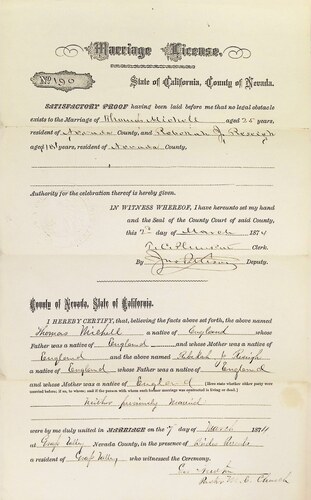 Marriage License.
No. 190
State of California, County of Nevada.
SATISFACTORY PROOF having been laid before me that no legal obstacle
exists to the Marriage of Thomas Michell aged 25 years,
resident of Nevada County, and Rebekah J.
aged 18 years, resident of Nevada County.
Authority for the celebration thereof is hereby given.
IN WITNESS WHEREOF, I have hereunto set my hand
and the Seal of the County Court of said County,
this day of March 1874
Clerk.
By Deputy.
County of Nevada, State of California.
I HEREBY CERTIFY, that, believing the facts above set forth, the above named
Thomas Michell a native of England whose
Father was a native of England and whose Mother was a native of
England and the above named Rebekah J.
a native of England whose Father was a native of England
and whose Mother was a native of England
Neither previously married
were by me duly united in MARRIAGE on the 7 day of March 1874
at Grass Valley Nevada County, in the presence of
resident of Grass Valley who witnessed the Ceremony.
Pastor M. E. Church